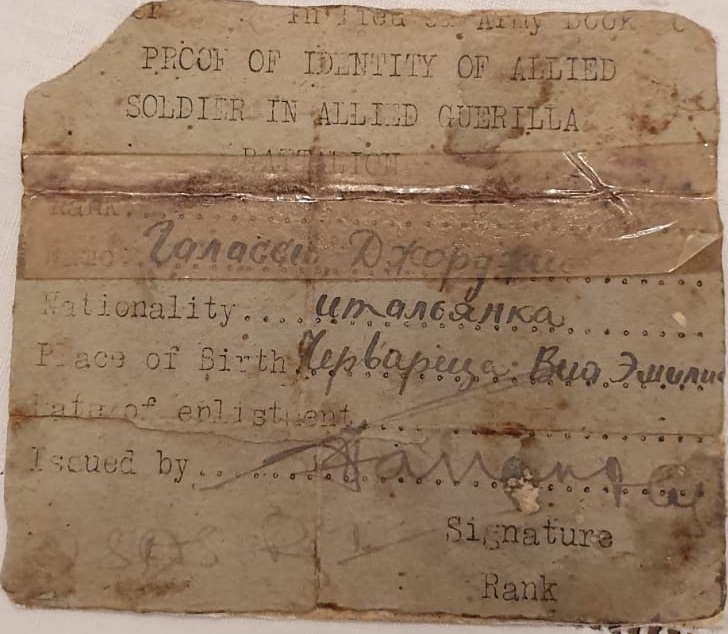 in Army Book
PROOF OF IDENTITY OF ALLIED
SOLDIER IN ALLIED GUERILLA
BATTALION
Rank
Name Галасси Джорджио
Nationality.... итальянка
Place of Birth. Червареца Виа Эмилия
Date of enlistment
Issued by
Signature
Rank